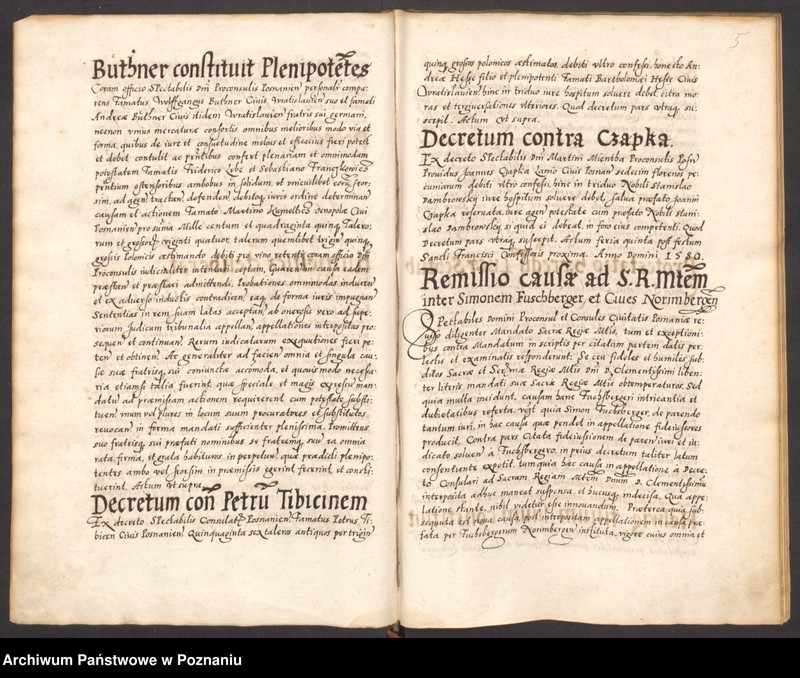 Buthner constituit Plenipotẽtes
Coram officio Spectabilis Dñi Proconsulis Posnanien̄ personalr̄ compa-
rens Famatus Wolffgangus Buthner Civis Vratislavien̄ suo et famati
Andreæ Buthner Civis itidem Vratislavien̄ fratris sui germani,
necnon unius mercaturæ consortis omnibus melioribus modo via et
forma, quibus de iure et consuetudine melius et efficacius fieri potest
et debet contulit ac p̄ntibus confert plenariam et omnimodam
potestatem Famatis Friderico et Sebastiano
p̄ntium ostensoribus ambobus in solidum, et unicuilibet eorũ seor-
sim, ad agen̄ tractan̄ defenden̄ debitoq̄ iuris ordine determinan̄
causam et actionem Famato Martino Civi
Posnanien̄ pro suma Mille centum et quadraginta quinq̄ Talero-
rum et grossorũ viginti quatuor, talerum quemlibet trigin̄ quinq̄
grossis Polonicis æstimando debiti
Proconsulis iudicialiter intentan̄
præstan̄ et præstari admitten̄di. Probationes ommodas inducen̄
et ex adverso inductis contradicen̄ easq̄ de forma iuris impugnan̄
Sententias in rem suam latas acceptan̄ ab onerosis vero ad supe-
riorum Judicum tribunalia appellan̄, appellationes interpositas pro-
sequen̄ et continuan̄. Rerum iudicatarum exequutiones fieri pe-
ten̄ et obtinen̄. Ac generaliter ad facien̄ omnia et singula cau-
sæ suæ fratrisq̄ sui coniunctæ accomoda, et quovis modo necessa-
ria etiamsi talia fuerint, quæ speciale et magis expressũ man-
datũ ad præmissam actionem requirerent cum potestate substi-
tuen̄ unum vel plures in locum suum procuratores et substitutos
revocan̄ in forma mandati sufficienter plenissima. Promittens
suo fratrisq̄ sui præfati nominibus se fratremq̄ suũ ea omnia
rata, firma, et grata habituros in perpetuũ, quæ prædicti plenipo-
tentes ambo vel seorsim in præmissis egerint fecerint et consti-
tuerint. Actum ut supra
Decretum coñ Petrũ Tibicinem
Ex decreto Spectabilis Consulatus Posnanien̄ Famatus Petrus Ti-
bicen Civis Posnanien̄ Quinquaginta sex taleros antiquos per trigin̄
5
quinq̄ grossos polonicos æstimatos debiti ultro confessi honesto An-
dreæ Hesse filio et plenipotenti Famati Bartholomæi Hesse Civis
Vratislavien̄ hinc in triduo iure hospitum solvere debet citra mo-
ras et tergiversationes ulteriores. Quod decretum pars utraq̄ su-
scepit. Actum ut supra.
Decretum contra Czapka.
Ex decreto Spectabilis Dñi Martini Proconsulis Posn̄
Providus Joannes Czapka Lanio Civis Posnan̄ sedecim florenos pe-
cuniarum debiti ultro confessi hinc in triduo Nobili Stanislao
Dambrowskij iure hospitum solvere debet. Salva præfato Joanni
Czapka reservata iure agen̄ potestate cum præfato Nobili Stani-
slao Dambrowskij si quid ei debeat, in foro eius competenti. Quod
Decretum pars utraq̄ suscepit. Actum feria quinta post festum
Sancti Francisci Confessoris proxima. Anno Domini 1580.
Remissio causæ ad S.R.Mtem̃
inter Simonem Fuschberger, et Cives Norimbergen̄
Spectabiles Domini Proconsul et Consules Civitatis Posnaniæ re-
viso diligenter Mandato Sacræ Regiæ Mtis, tum et exceptioni-
bus contra Mandatum in scriptis per citatam partem datis per-
lectis et examinatis responderunt: Se ceu fideles et humiles sub-
ditos Sacræ et Serm̃æ Regiæ Mtis Dni D. Clementissimi liben-
ter litteris mandati suæ Sacræ Regiæ Mtis obtemperaturos. Sed
quia multa incidunt, causam hanc Fuchsbergeri intricantia et
dubietatibus referta, quia Simon Fuchsberger, de parendo
tantum iuri, in hac causa quæ pendet in appellatione fideiussores
producit. Contra pars Citata fideiussionem de paren̄ iuri et iu-
dicato solven̄ à Fuchsbergero, in prius decretum taliter latum
consentiente expetit, tum quia hæc causa in appellatione à Decre-
to Consulari ad Sacram Regiam Mtem̃ Dnum D. Clementissimũ
interposita adhuc maneat suspensa, et hucusq̄ indecisa, Qua appe-
llatione stante, nihil videtur esse innovandum. Præterea quia sub-
sequuta est nova causa post interpositam appellationem in causa præ-
fata per Fuchsbergerum Norimbergen̄ instituta, vigore cuius omnia et
Archiwum Państwowe w Poznaniu